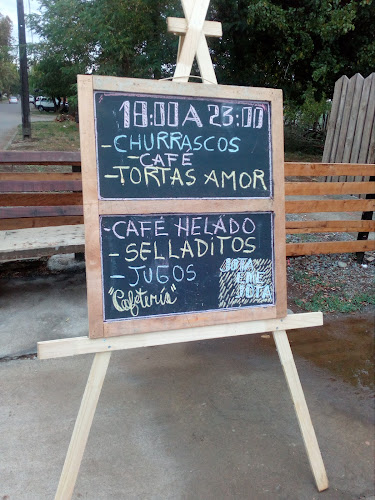 18:00 A 23:00
-CHURRASCOS
-CAFÉ
-TORTAS AMOR
-CAFÉ HELADO
-SELLADITOS
-JUGOS
"Cafetería"